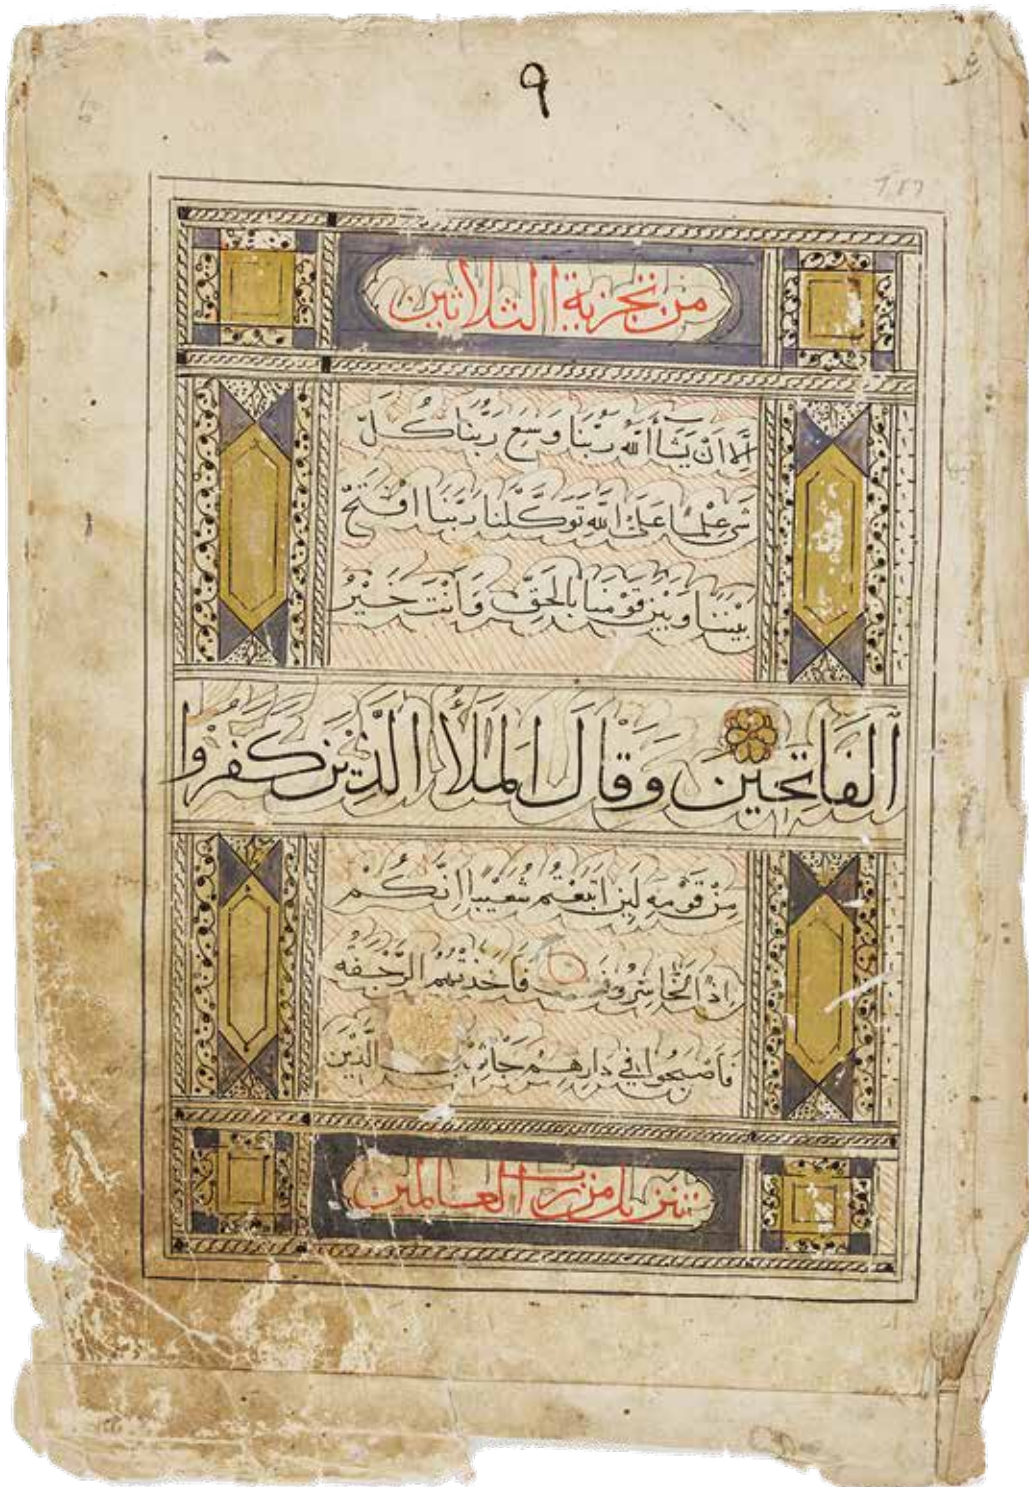 ٩
من تجزية الثلاثين
إِلَّا اَنْ يَشَأَ اللّٰهُ رَبُّنَا وَسِعَ رَبُّنَا كُلَّ
شَىْءٍ عِلْمًا عَلَى اللّٰهِ تَوَكَّلْنَا رَبَّنَا افْتَحْ
بَيْنَنَا وَبَيْنَ قَوْمِنَا بِالْحَقِّ وَاَنْتَ خَيْرُ
الْفَاتِحِينَ وَقَالَ الْمَلَأُ الَّذِينَ كَفَرُوا
مِنْ قَوْمِهِ لَئِنِ اتَّبَعْتُمْ شُعَيْبًا اِنَّكُمْ
اِذًا لَخَاسِرُونَ فَاَخَذَتْهُمُ الرَّجْفَةُ
فَاَصْبَحُوا فِي دَارِهِمْ جَاثِمِينَ الَّذِينَ
تنزيل من رب العالمين